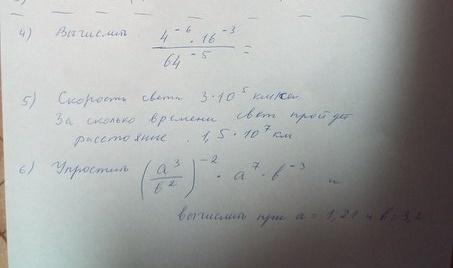 4) Вычислить (4^-6 · 16^-3) / 64^-5 =
5) Скорость света 3·10^5 км/сек
За сколько времени свет пройдет
расстояние 1,5·10^7 км
6) Упростить (a^3 / b^2)^-2 · a^7 · b^-3 и
вычислить при a = 1,21 и b = 3,2